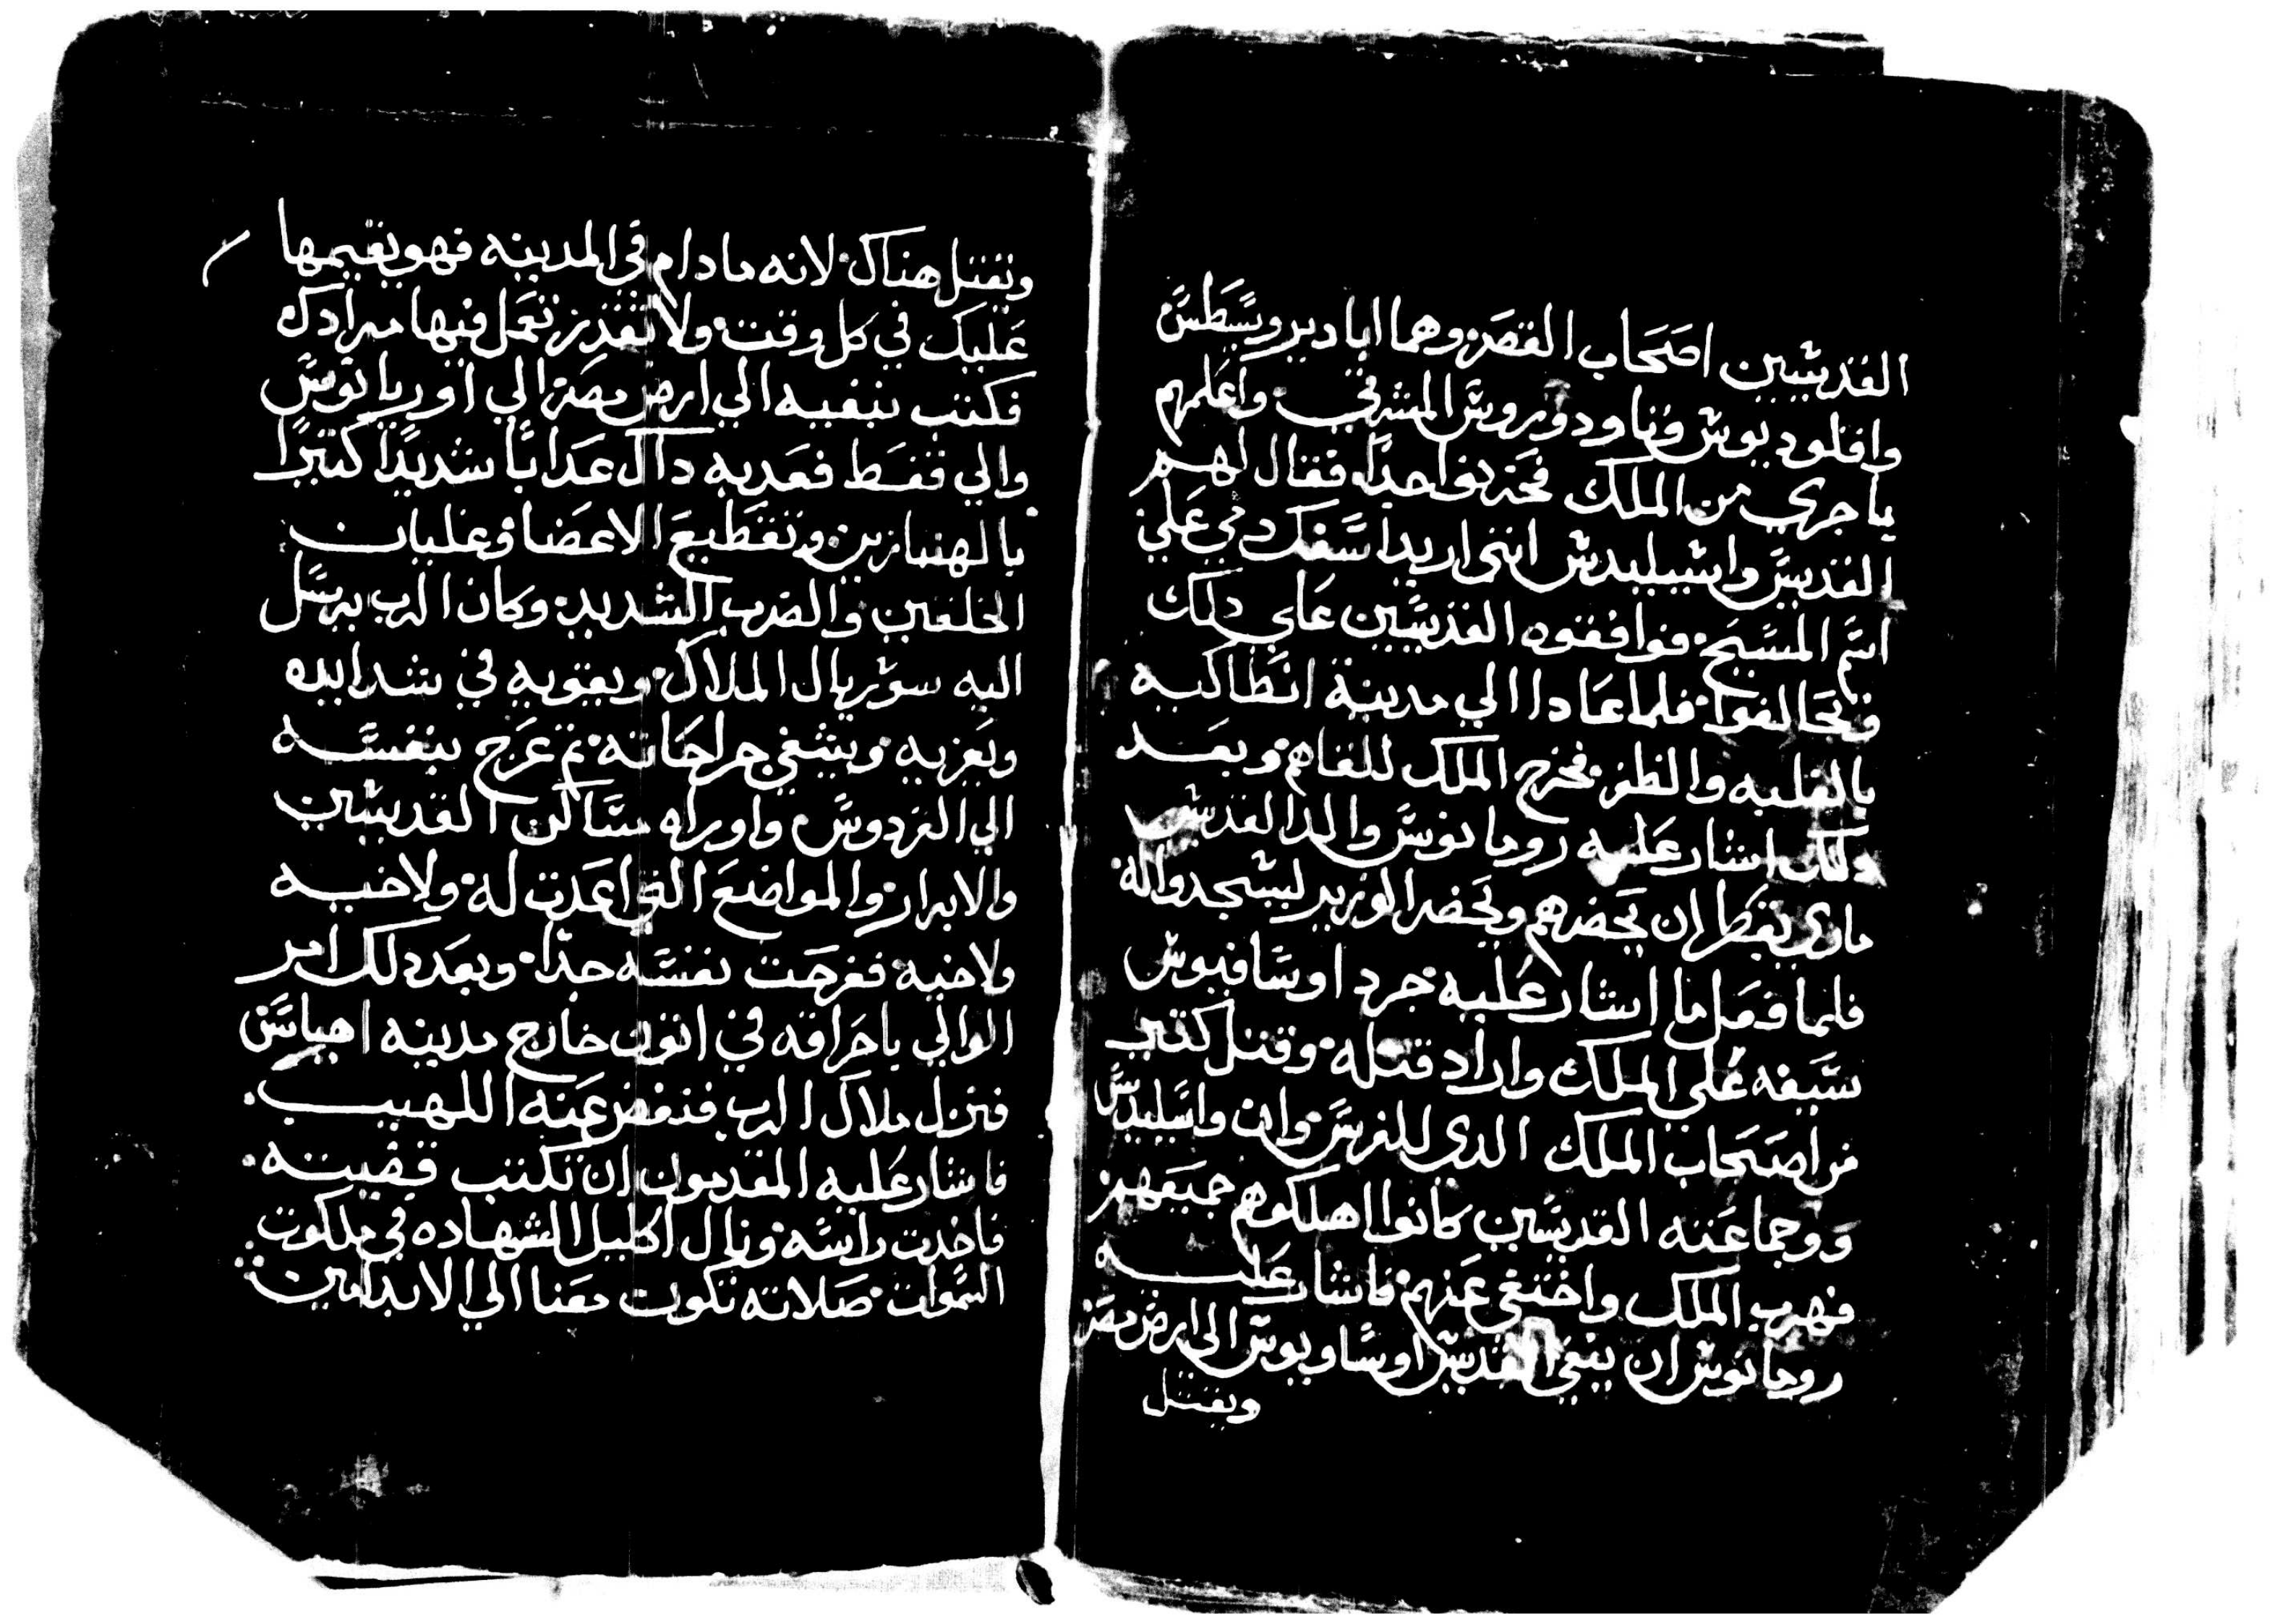 القديسين اصحاب القصر وهما ابادير ويسطس
واقلوديوس وتاودوروس المشرقي واعلمهم
بما جري من الملك فحزنوا جدا فقال لهم
القديس واسيليدس انني اريد اسفك دمي علي
اسم المسيح فوافقوه القديسين علي دلك
وتحالفوا فلما عادا الي مدينة انطاكيه
بالغلبه والظفر فخرج الملك للقاهم وبعد
دلك اشار عليه رومانوس والد القديس
ماري بقطر ان يحضرهم ويحضر الوزير ليسجدوا له
فلما فعل ما اشار عليه جرد اوسافيوس
سيفه علي الملك واراد قتله وقتل كتير
من اصحاب الملك الدي للفرس وان واسيليدس
ووجماعته القديسين كانوا اهلكوهم جميعهم
فهرب الملك واختفي عنهم فاشار عليه
رومانوس ان ينفي القديس اوساويوس الي ارض مصر
ويقتل
ويقتل هناك لانه ما دام في المدينه فهو يقيمها
عليك في كل وقت ولا تقدر تعمل فيها مرادك
فكتب بنفيه الي ارض مصر الي اوريانوس
والي قفط فعدبه داك عدابا شديدا كتيرا
بالهنبازين وتقطيع الاعضا وغليان
الخلقين والضرب الشديد وكان الرب يرسل
اليه سوريال الملاك ويقويه في شدايده
ويعزيه ويشفي جراحاته تم عرج بنفسه
الي الفردوس واوراه مساكن القديسين
والابرار والمواضع التي اعدت له ولاخيه
ولاخيه ففرحت نفسه جدا وبعد دلك امر
الوالي باحراقه في اتون خارج مدينه اهناس
فنزل ملاك الرب فنفض عنه اللهيب
فاشار عليه المقدمون ان تكتب قضيته
فاخدت راسه ونال اكليل الشهاده في ملكوت
السموات صلاته تكون معنا الي الابد امين